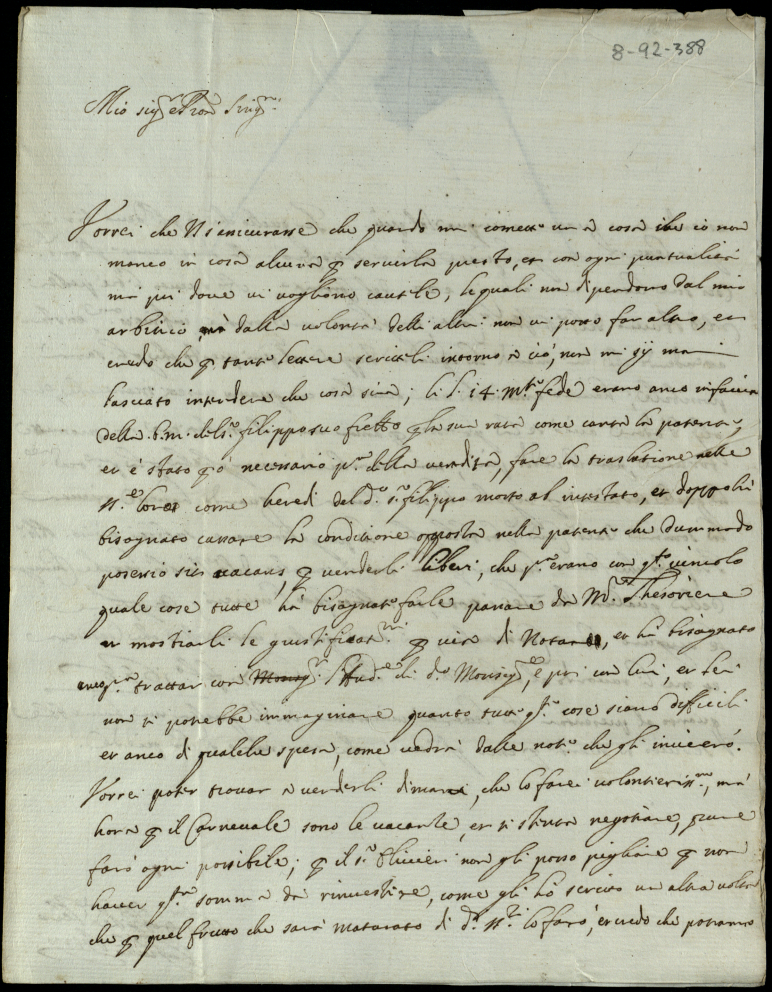 8-92-388
Mio sig.r e Pron Sing.mo
Vorrei che V S assicurasse che quando mi comette una cosa che io non
manco in cosa alcuna p servirla presto, et con ogni puntualità
mà poi dove vi vogliono cautele, le quali non dipendono dal mio
arbitrio, mà dalla volontà delli altri non vi posso far altro, et
credo che p tante lettere scritteli intorno a ciò, non mi sij mai
lasciato intendere che cosa sia; li l. 14. m.ti fede erano anco in faccia
della b.m. del s.r filippo suo frello p la sua rata come canta la patente,
et è stato p ò necessario p.a della vendita, fare la traslatione nelle
come heredi del d.o s.r filippo morto ab intestato, et doppo hà
bisognato cassare la conditione opposta nella patente che dummodo
possessio sit vacans, p venderli liberi, che p.a erano con q.to vincolo
quale cose tutte hà bisognato farle passare da M.r Thesoriere
et mostrarli le giustificat.ni p via di Notaro, et hà bisognato
anco p.a trattar con di d.o Monsig.re, e poi con lui, et lei
non si potrebbe immaginare quanto tutte q.te cose siano difficili
et anco di qualche spesa, come vedrà dalle note che gli invierò.
Vorrei poter trovar a venderli dimani, che lo farei volontieriss.mo, mà
hora p il Carnevale sono le vacanze, et si stenta negotiare, pure
farò ogni possibile; p il s.r Olivieri non gli posso pigliare p non
haver q.ta somma da rinvestire, come gli hò scritto un altra volta
che p quel frutto che sarà maturato di d.i lo farò, et credo che potranno